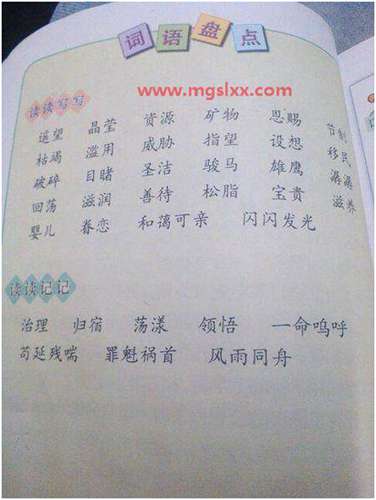 词语盘点
www.mgslxx.com
读读写写
遥望 晶莹 资源 矿物 恩赐 节制
枯竭 滥用 威胁 指望 设想 移民
破碎 目睹 圣洁 骏马 雄鹰 潺潺
回荡 滋润 善待 松脂 宝贵 滋养
婴儿 眷恋 和蔼可亲 闪闪发光
读读记记
治理 归宿 荡漾 领悟 一命呜呼
苟延残喘 罪魁祸首 风雨同舟